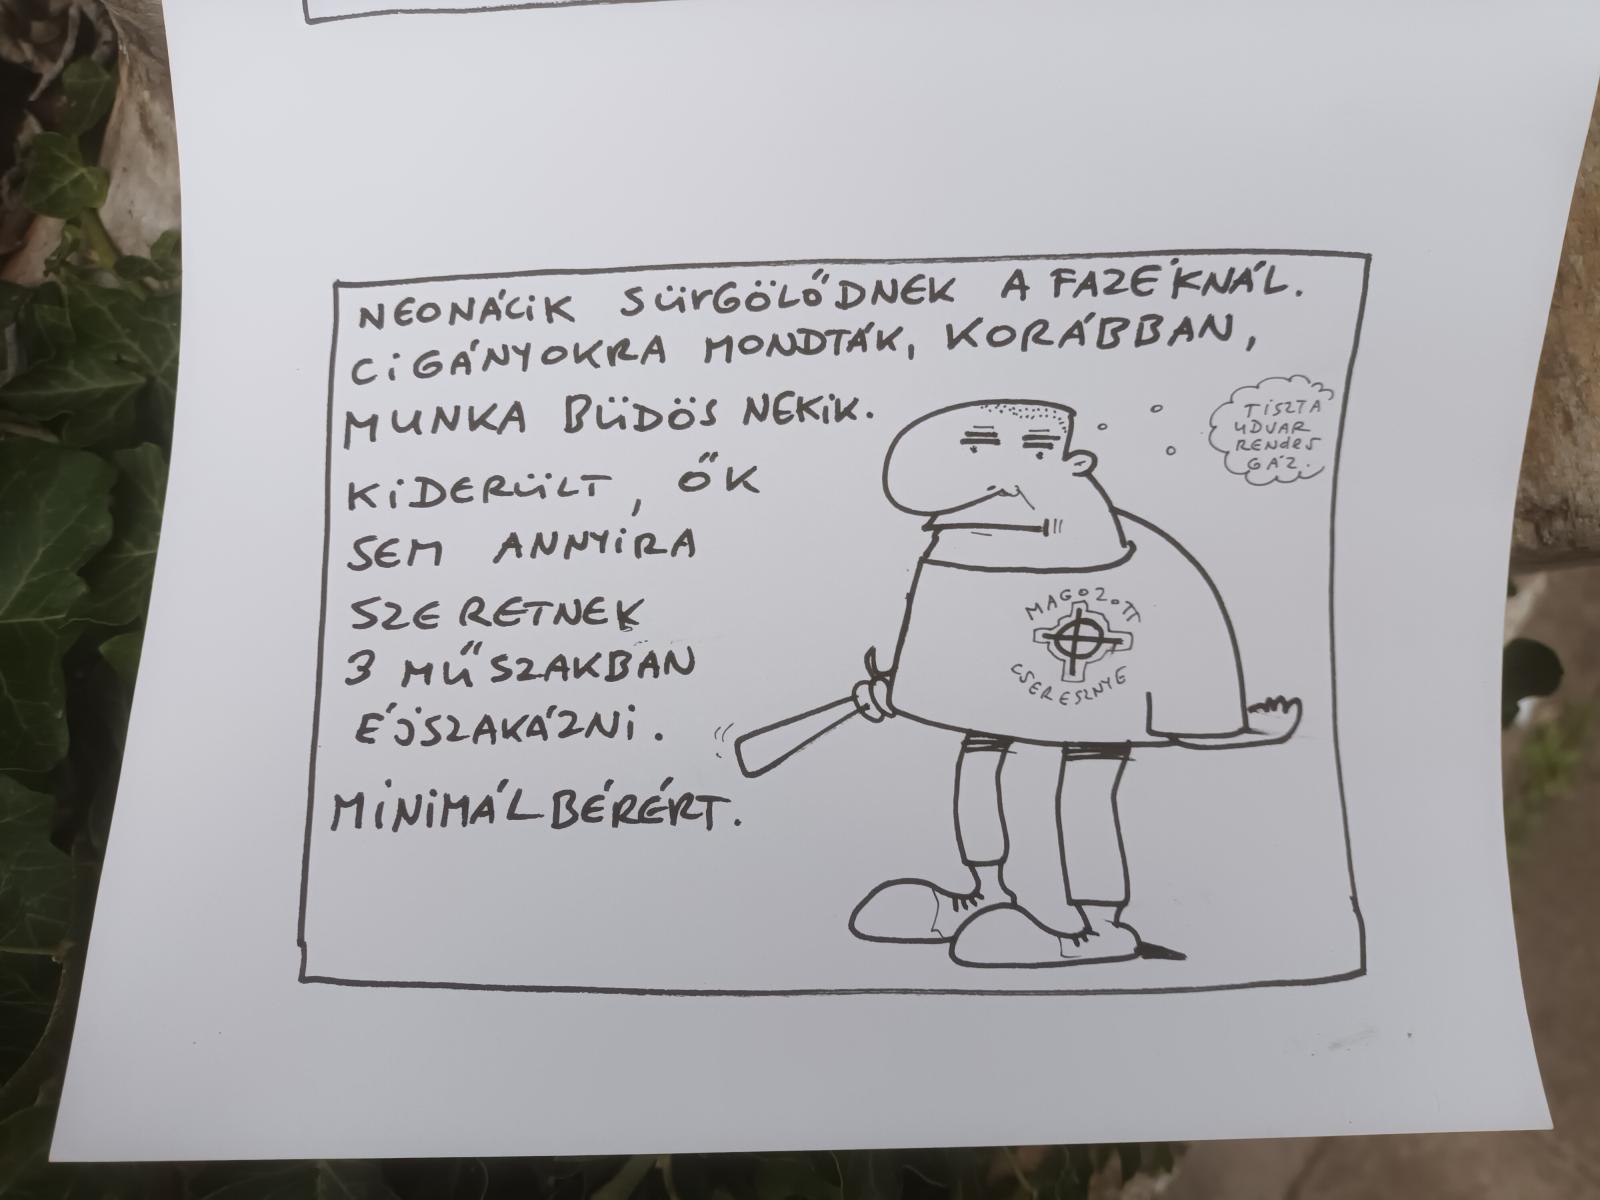 NEONÁCIK SÜRGÖLŐDNEK A FAZÉKNÁL.
CIGÁNYOKRA MONDTÁK, KORÁBBAN,
MUNKA BÜDÖS NEKIK.
KIDERÜLT, ŐK
SEM ANNYIRA
SZERETNEK
3 MŰSZAKBAN
ÉJSZAKÁZNI.
MINIMÁLBÉRÉRT.
TISZTA
UDVAR
RENDES
GÁZ.
MAGOZOTT
CSERESZNYE